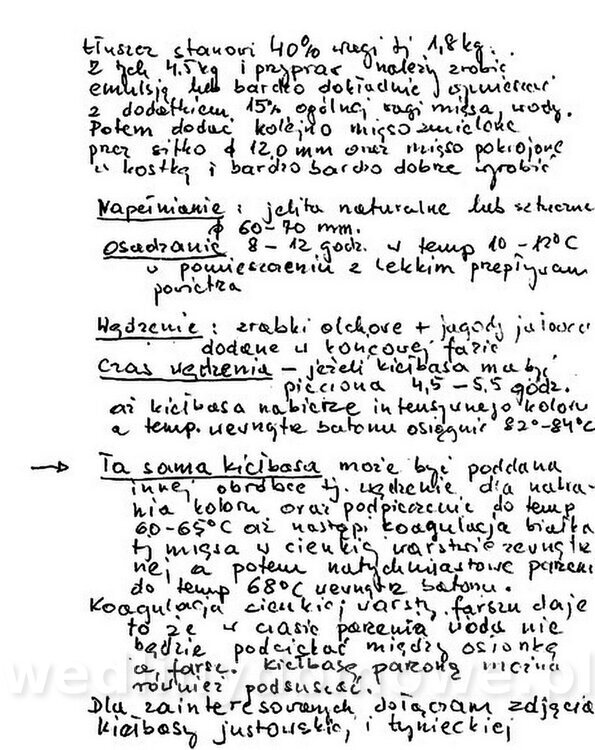 tłuszcz stanowi 40% wagi tj 1,8 kg.
Z tych 4.5 kg i przypraw należy zrobić
emulsję lub bardzo dokładnie wymieszać
z dodatkiem 15% ogólnej wagi mięsa, wody.
Potem dodać kolejno mięso zmielone
przez sitko ϕ 12,0 mm oraz mięso pokrojone
w kostkę i bardzo bardzo dobrze wyrobić
Napełnianie : jelita naturalne lub sztuczne
ϕ 60-70 mm.
Osadzanie 8-12 godz. w temp 10-12°C
w pomieszczeniu z lekkim przepływem
powietrza
Wędzenie : zrąbki olchowe + jagody jałowca
dodane w końcowej fazie
Czas wędzenia - jeżeli kiełbasa ma być
pieczona 4,5-5,5 godz.
aż kiełbasa nabierze intensywnego koloru
a temp. wewnątrz batonu osiągnie 82°-84°C
→ Ta sama kiełbasa może być poddana
innej obróbce tj. wędzenie dla nabra-
nia koloru oraz podpieczenie do temp
60-65°C aż nastąpi koagulacja białka
tj mięsa w cienkiej warstwie zewnętrz
nej a potem natychmiastowe parzenie
do temp 68°C wewnątrz batonu.
Koagulacja cienkiej warstwy farszu daje
to że w czasie parzenia woda nie
będzie podciekać między osłonkę
a farsz. Kiełbasę parzoną można
również podsuszać.
Dla zainteresowanych dołączam zdjęcia
kiełbasy justowskiej i tynieckiej
wedlinydomowe.pl